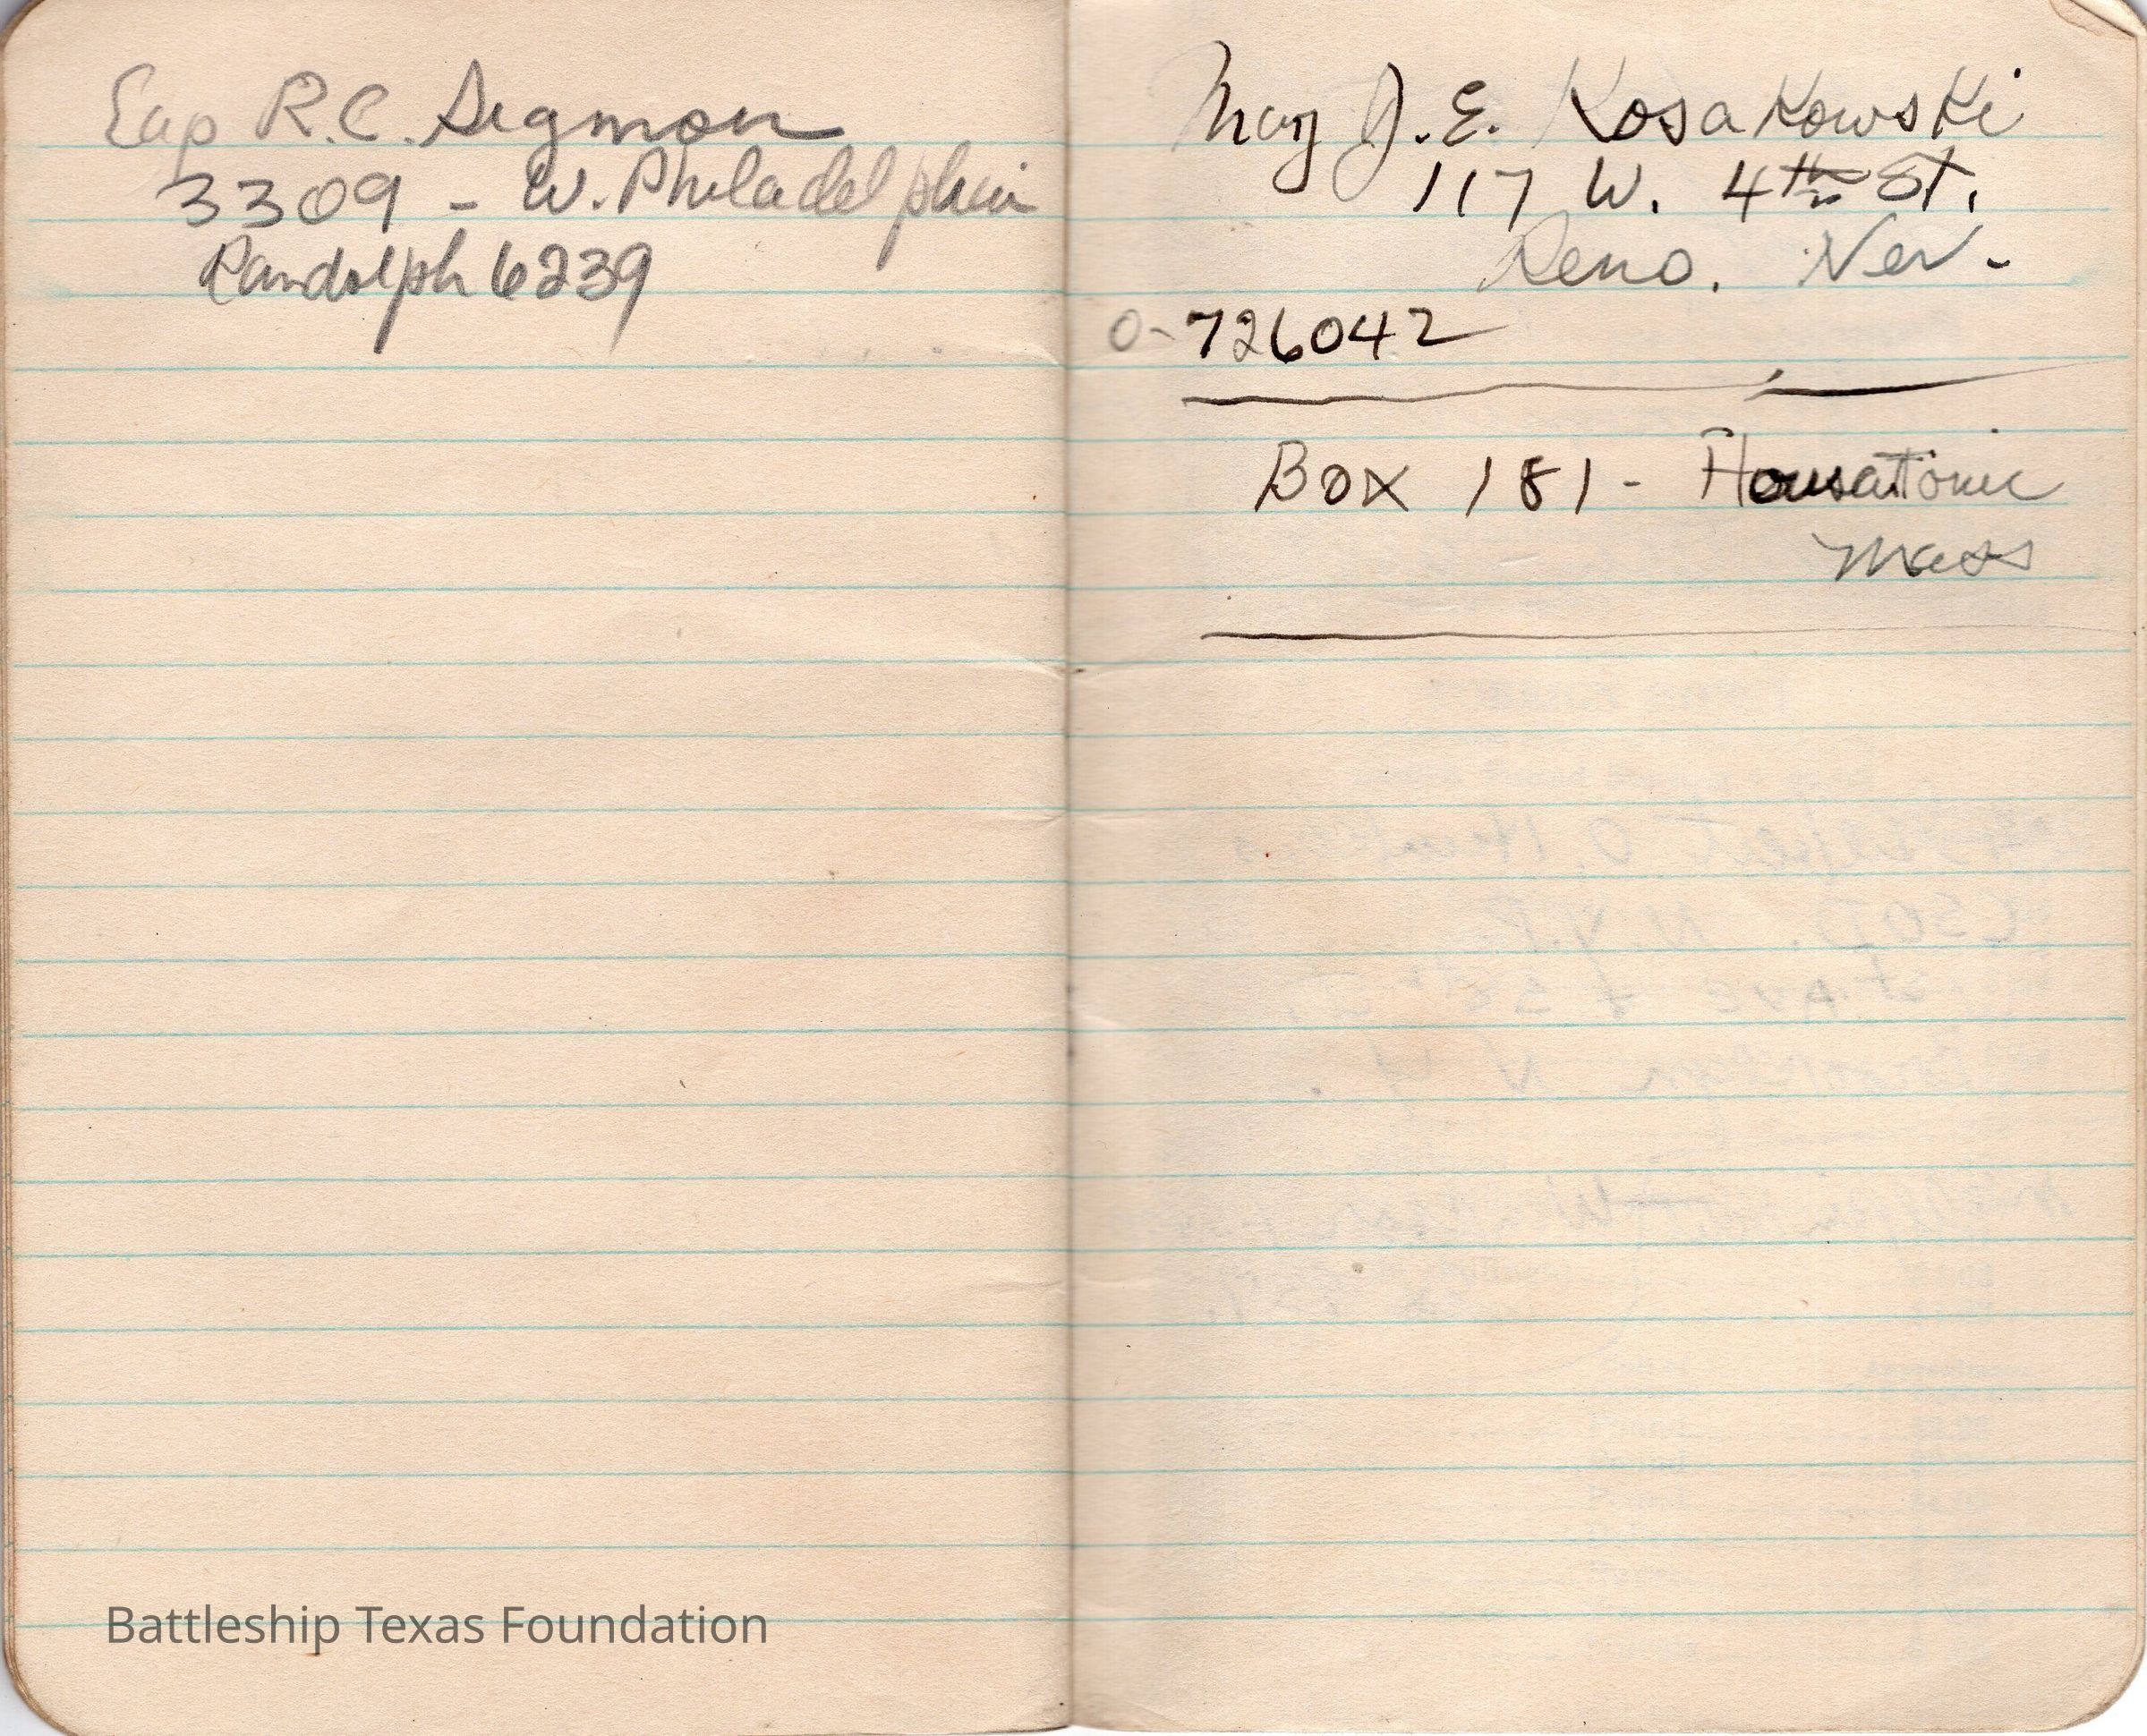 Cap R.C. Sigmon
3309 - W. Philadelphia
Randolph 6239
Maj J. E. Kosakowski
117 W. 4th St.
Reno. Nev.
0-726042
Box 181 - Housatonic
Mass
Battleship Texas Foundation